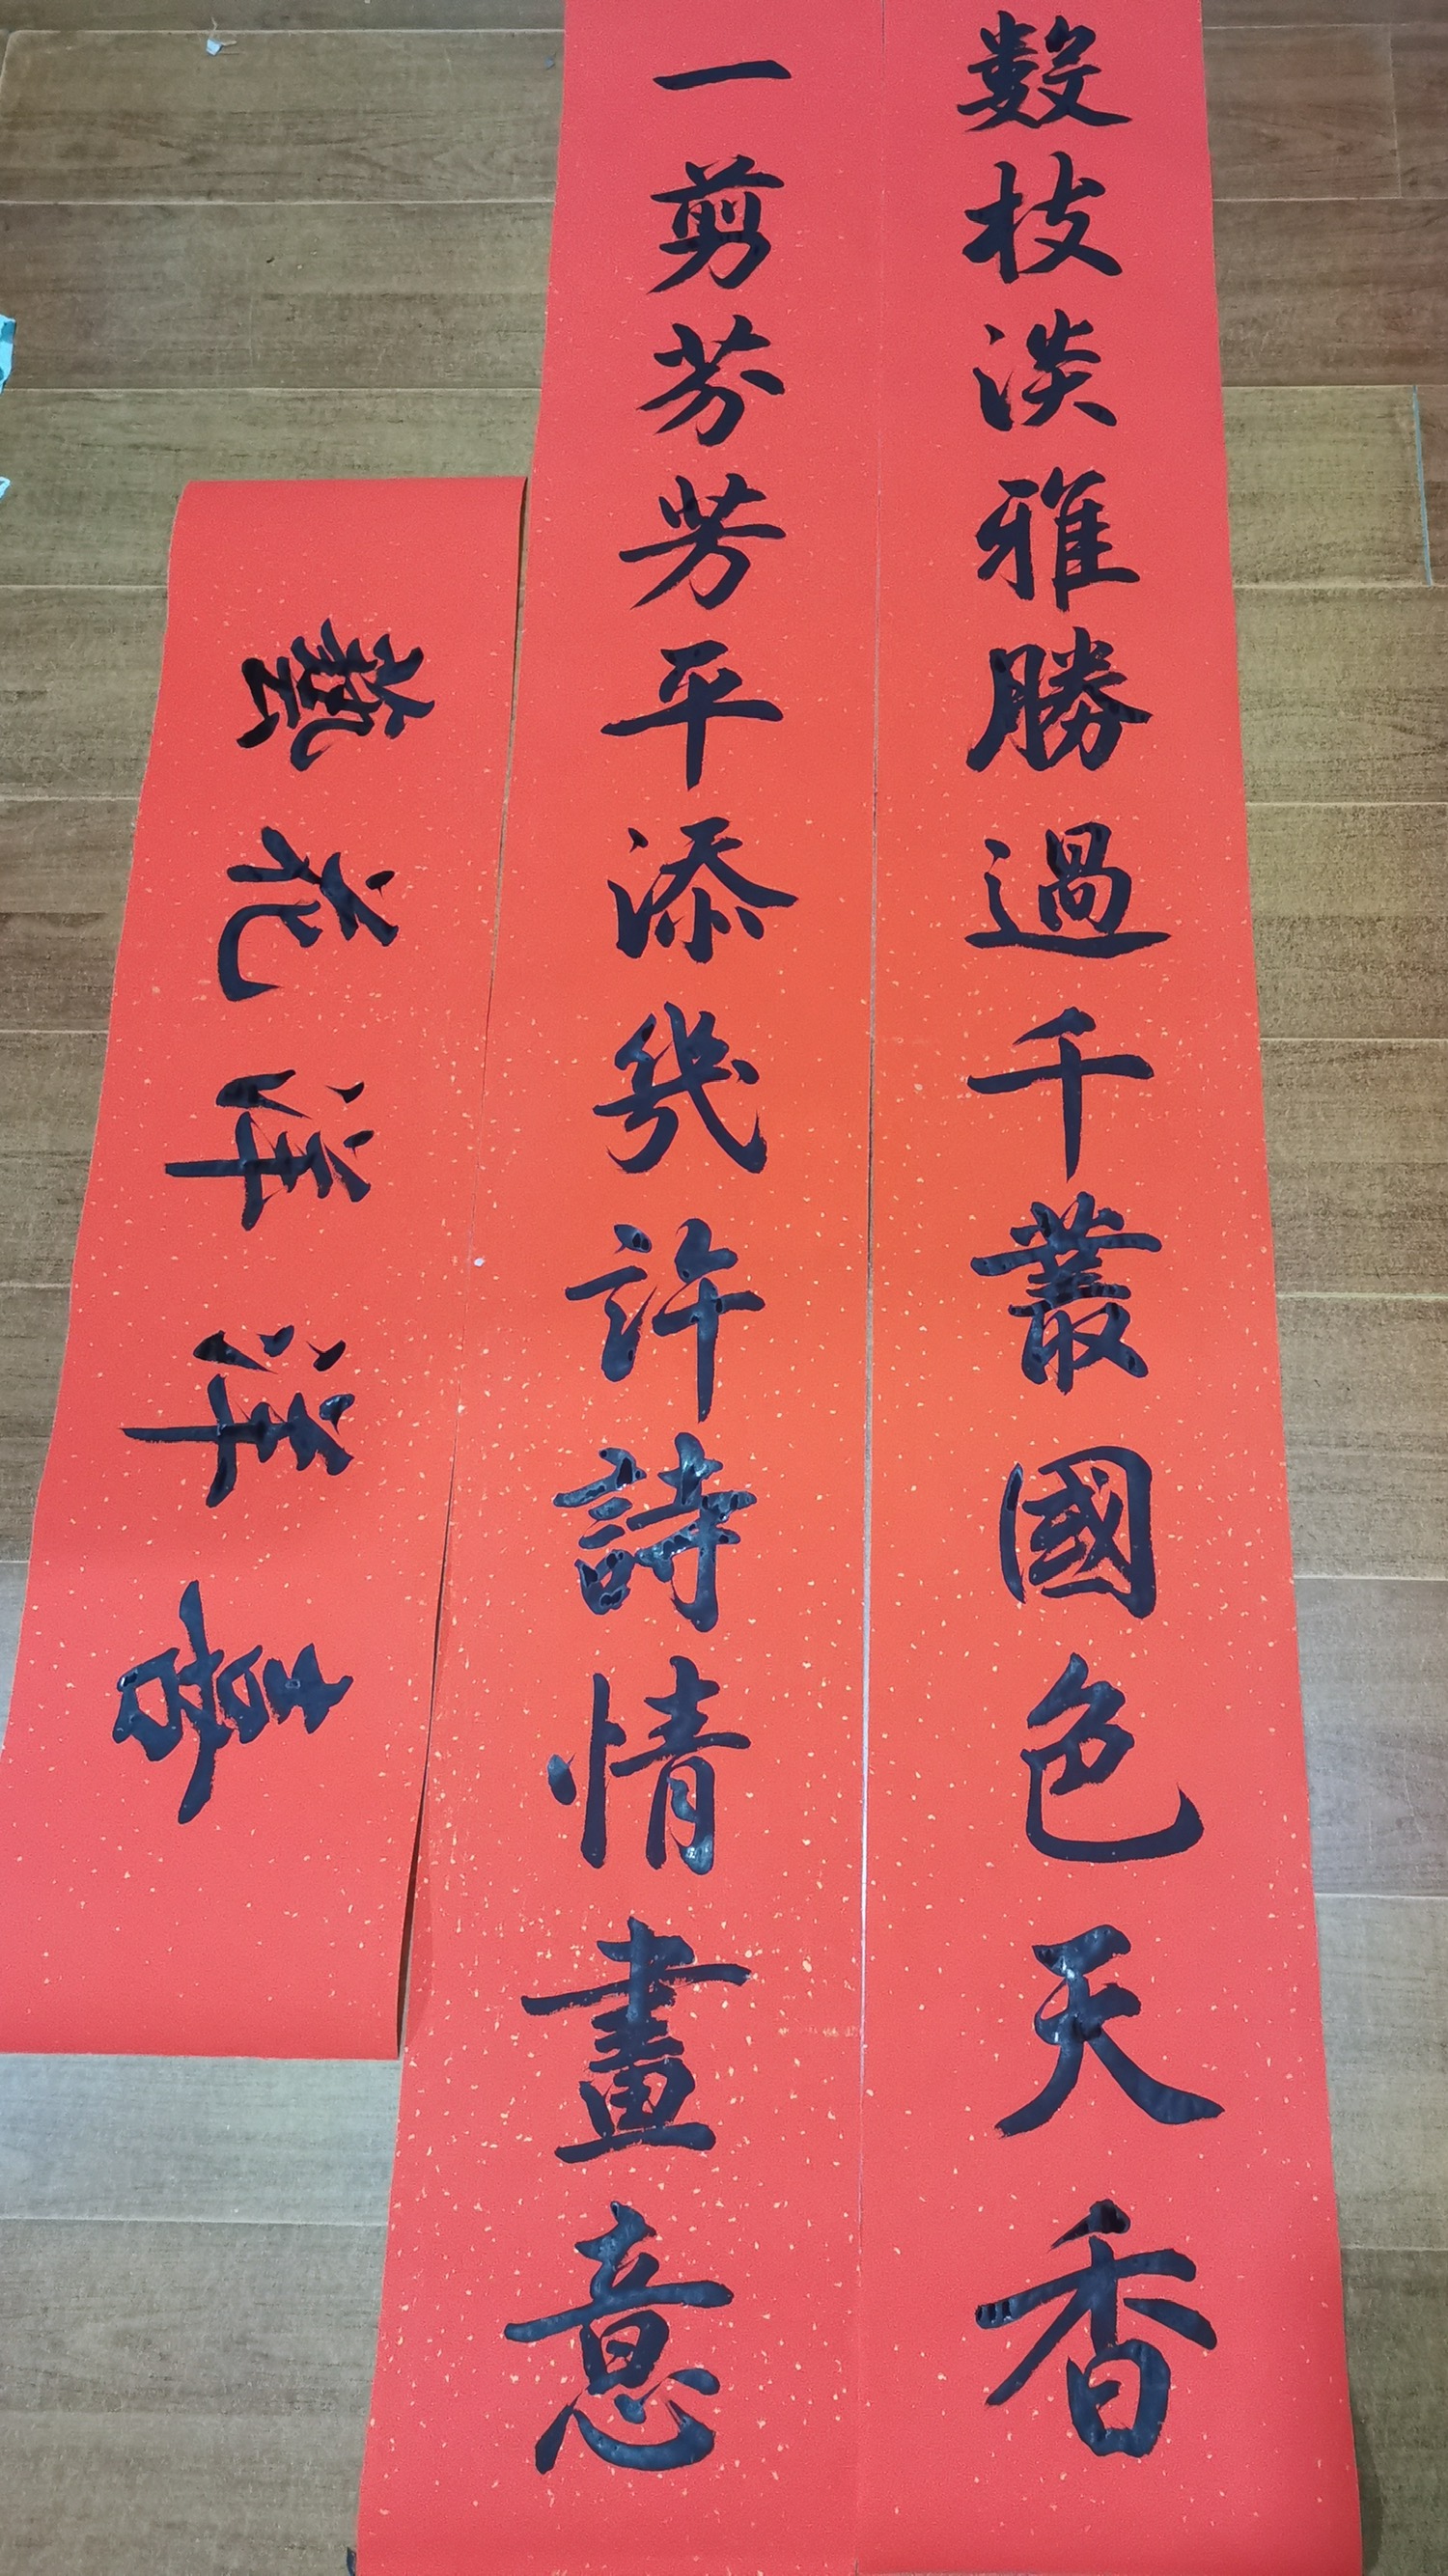 数枝淡雅勝過千叢國色天香
一剪芬芳平添幾許詩情畫意
藝花洋洋喜